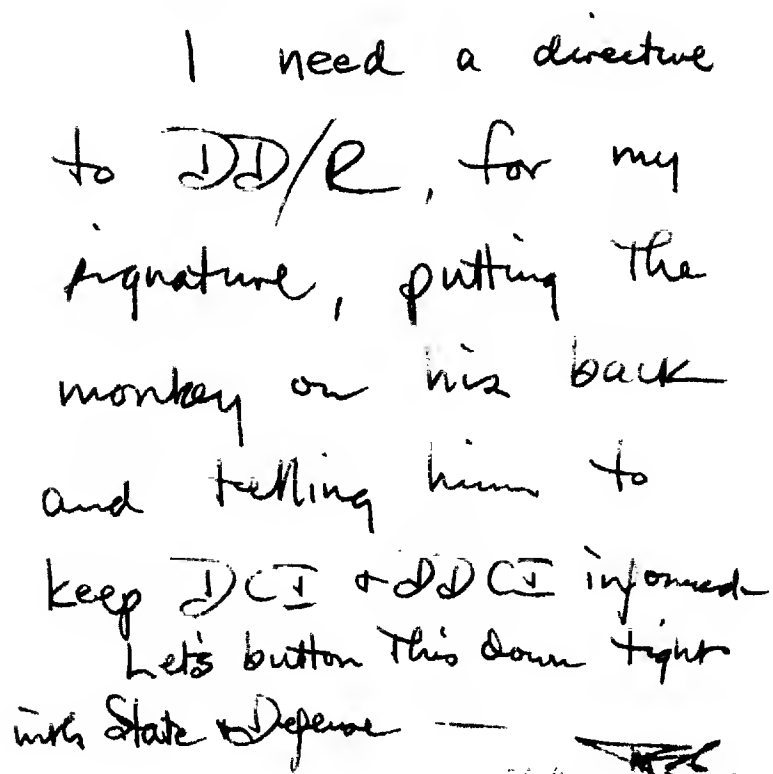 I need a directive
to DD/R, for my
signature, putting the
monkey on his back
and telling him to
keep DCI + DDCI informed
Let's button this down tight
with State & Defense —